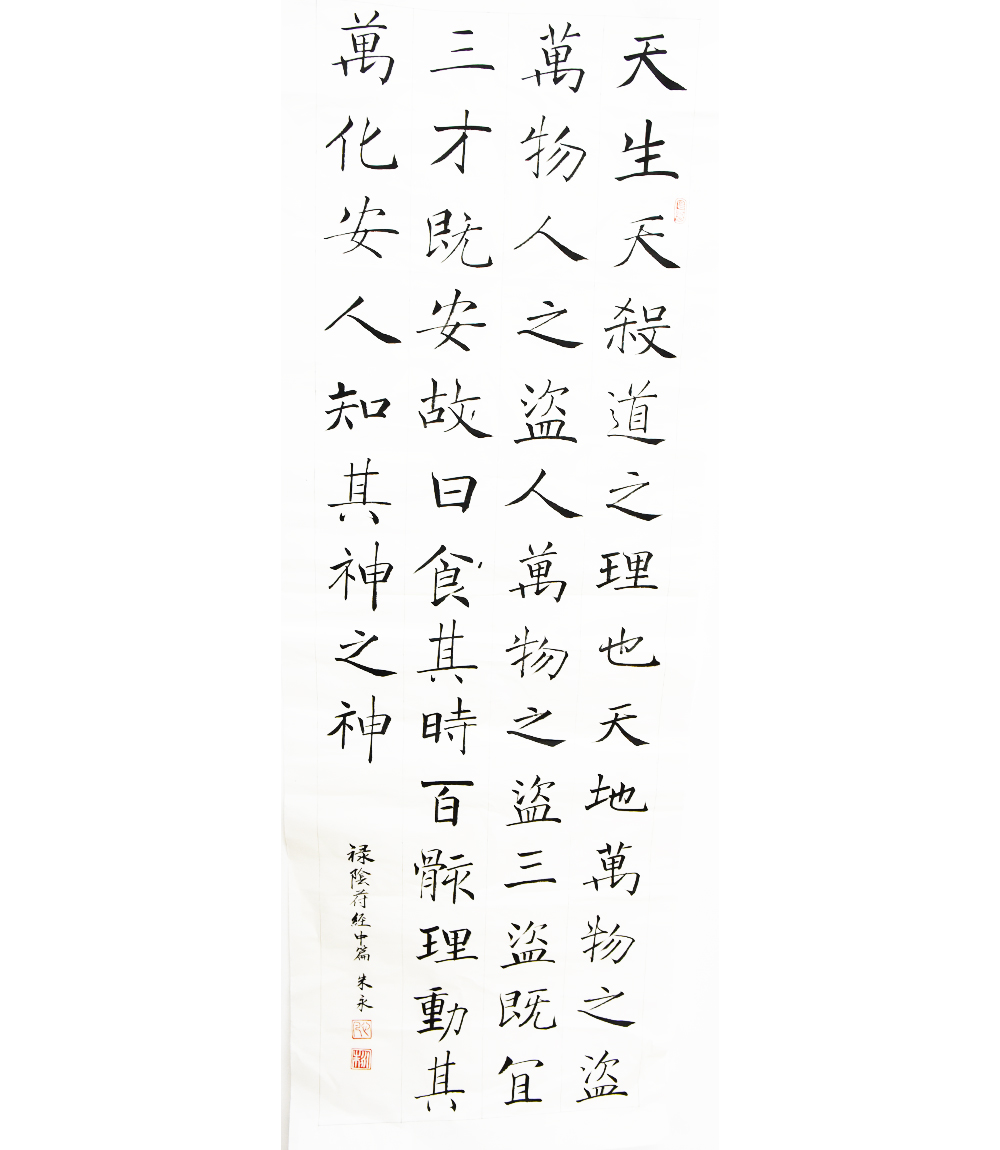 天生天殺道之理也天地萬物之盜
萬物人之盜人萬物之盜三盜既宜
三才既安故曰食其時百骸理動其
萬化安人知其神之神
禄陰苻經中篇 朱永